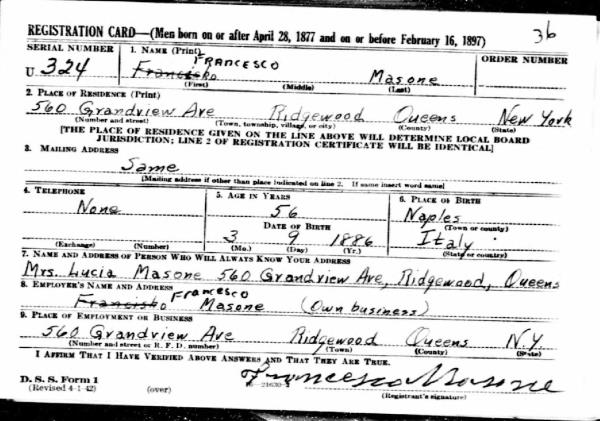 36
REGISTRATION CARD—(Men born on or after April 28, 1877 and on or before February 16, 1897)
SERIAL NUMBER 1. NAME (Print) ORDER NUMBER
FRANCESCO
U 324 Francisko Masone
(First) (Middle) (Last)
2. PLACE OF RESIDENCE (Print)
560 Grandview Ave Ridgewood Queens New York
(Number and street) (Town, township, village, or city) (County) (State)
[THE PLACE OF RESIDENCE GIVEN ON THE LINE ABOVE WILL DETERMINE LOCAL BOARD
JURISDICTION; LINE 2 OF REGISTRATION CERTIFICATE WILL BE IDENTICAL]
3. MAILING ADDRESS
Same
[Mailing address if other than place indicated on line 2. If same insert word same]
4. TELEPHONE 5. AGE IN YEARS 6. PLACE OF BIRTH
None 56 Naples
DATE OF BIRTH (Town or county)
3 9 1886 Italy
(Exchange) (Number) (Mo.) (Day) (Yr.) (State or country)
7. NAME AND ADDRESS OF PERSON WHO WILL ALWAYS KNOW YOUR ADDRESS
Mrs. Lucia Masone 560 Grandview Ave, Ridgewood, Queens
8. EMPLOYER'S NAME AND ADDRESS
Francisko Francesco Masone (Own business)
9. PLACE OF EMPLOYMENT OR BUSINESS
560 Grandview Ave Ridgewood Queens N.Y.
(Number and street or R. F. D. number) (Town) (County) (State)
I AFFIRM THAT I HAVE VERIFIED ABOVE ANSWERS AND THAT THEY ARE TRUE.
Francesco Masone
D. S. S. Form 1
(Revised 4-1-42) (over) 16—21630-2 (Registrant's signature)